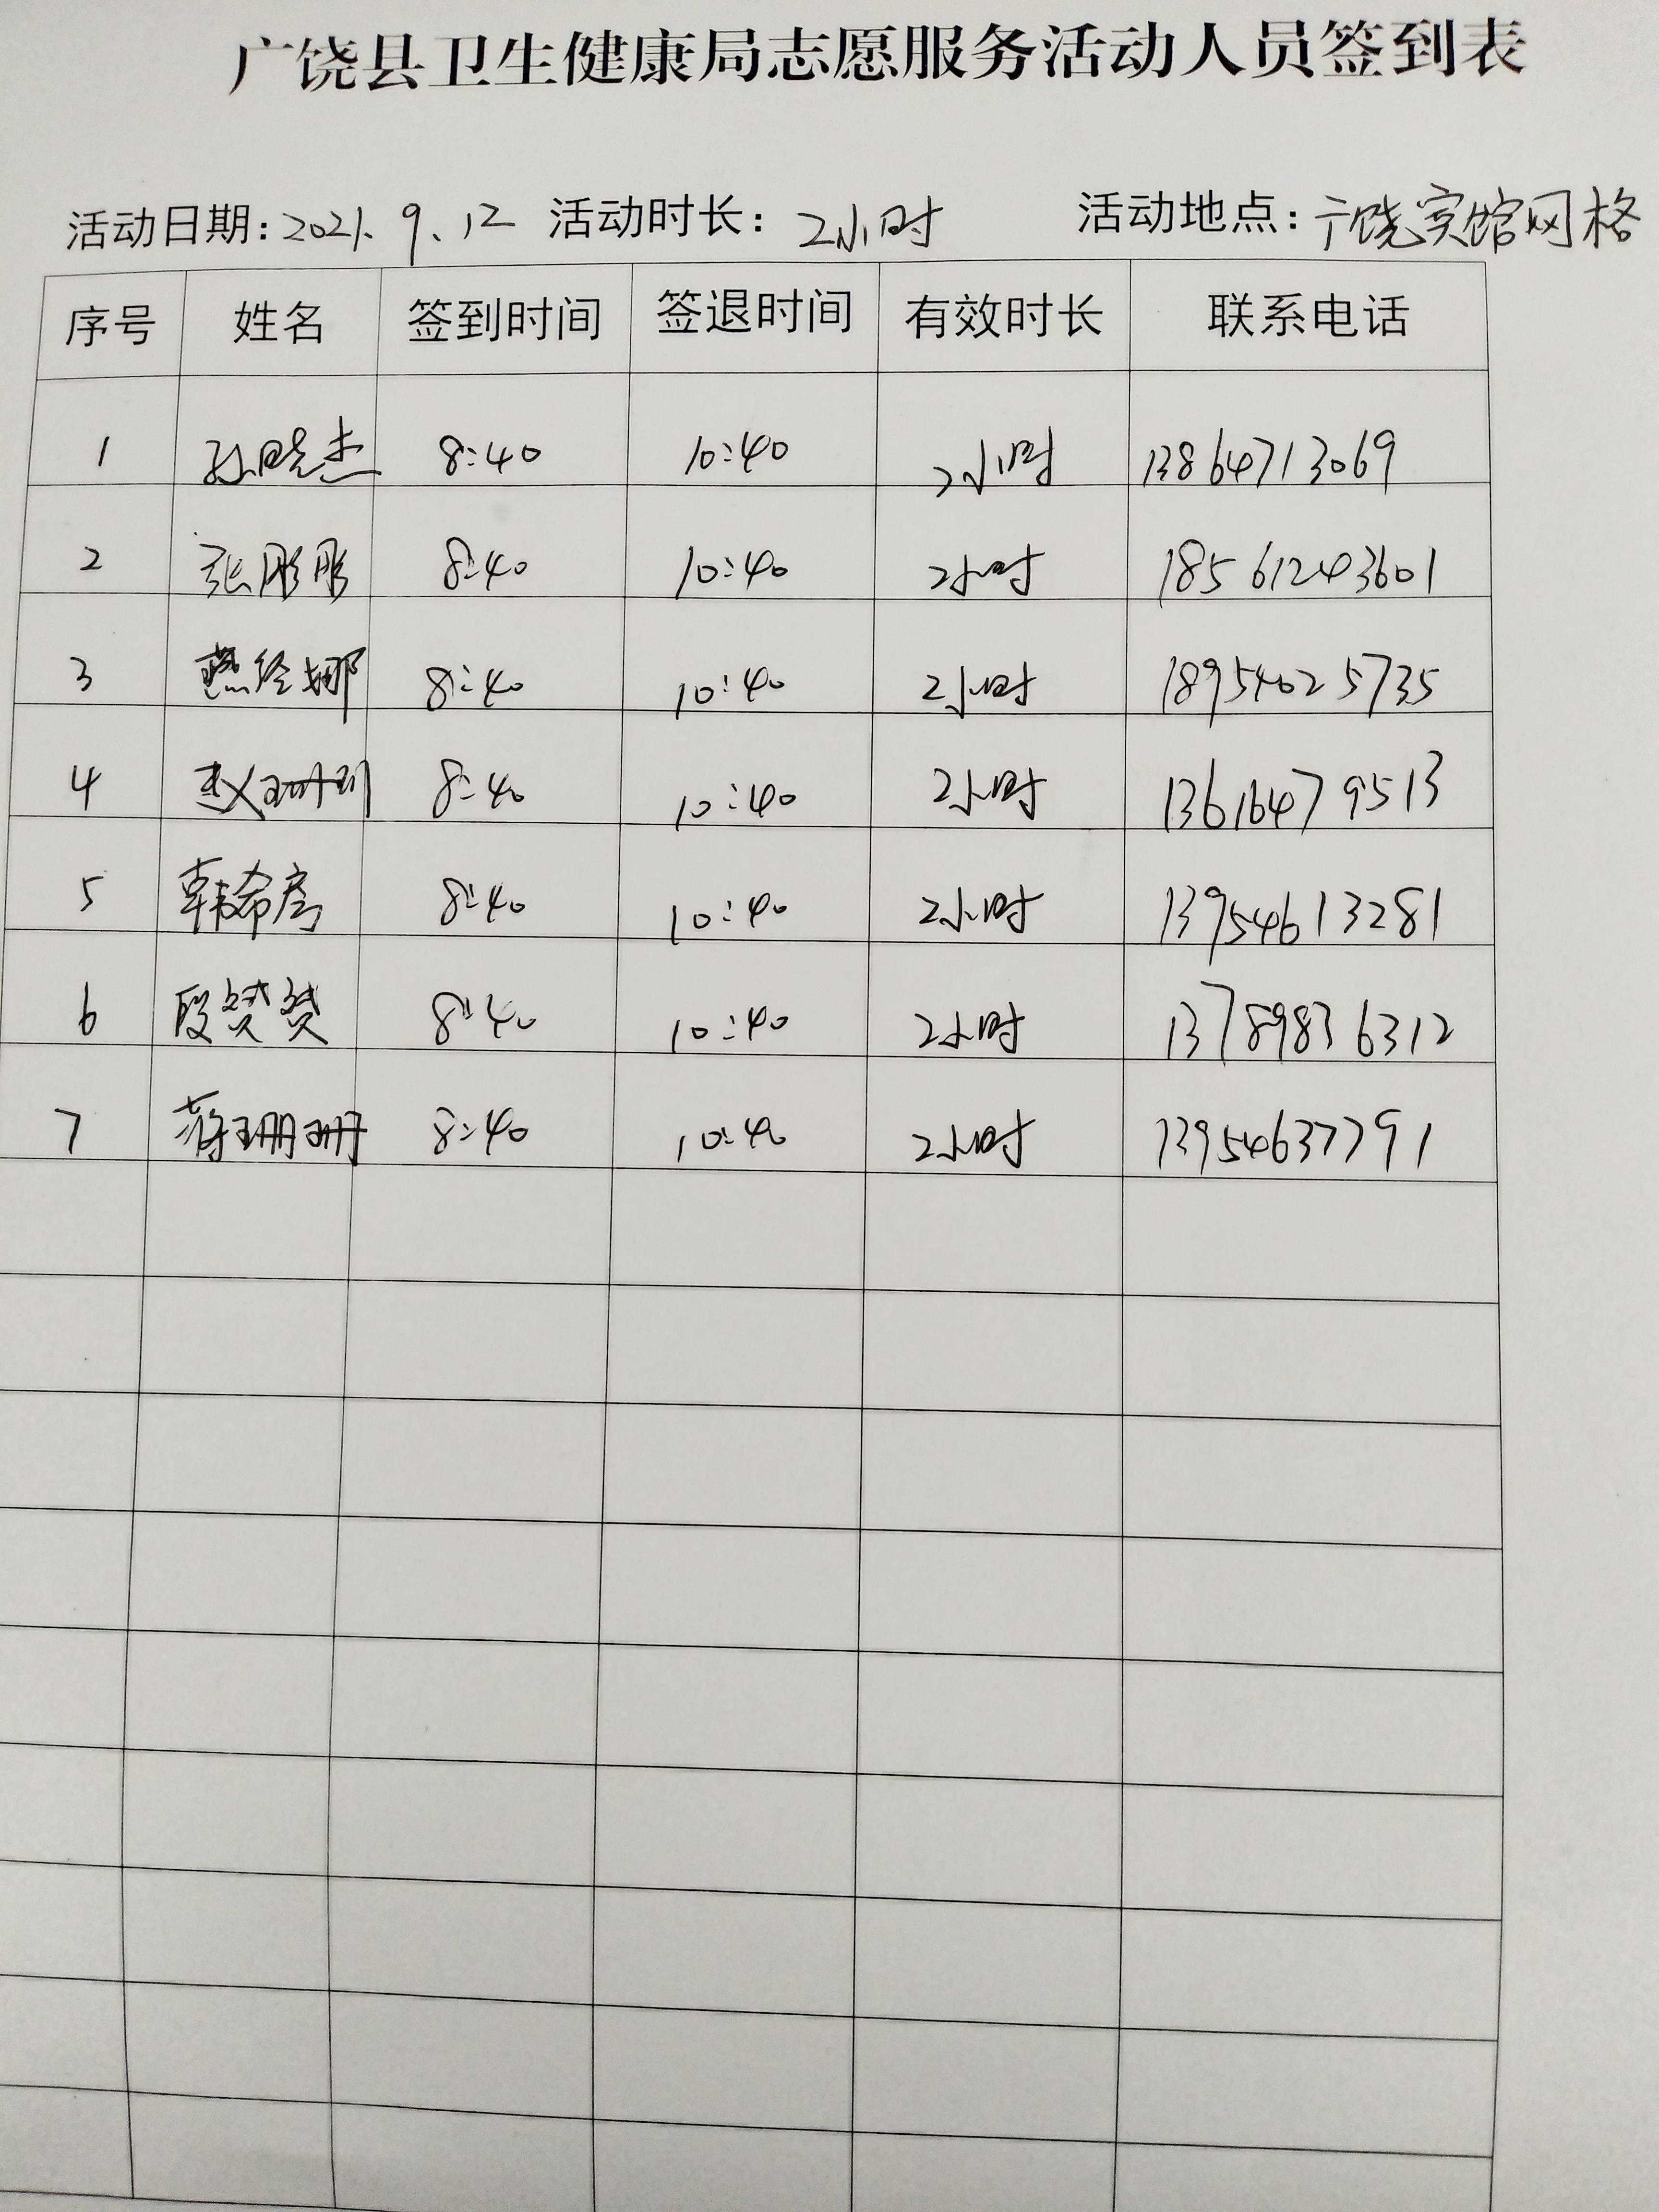 广饶县卫生健康局志愿服务活动人员签到表
活动日期：2021.9.12 活动时长：2小时 活动地点：广饶宾馆网格
序号 姓名 签到时间 签退时间 有效时长 联系电话
1 孙晓杰 8:40 10:40 2小时 13864713069
2 张彤彤 8:40 10:40 2小时 18561243601
3 燕经娜 8:40 10:40 2小时 18954025735
4 赵珊珊 8:40 10:40 2小时 13616479513
5 韩希房 8:40 10:40 2小时 13954613281
6 段赟赟 8:40 10:40 2小时 13789836312
7 蒋珊珊 8:40 10:40 2小时 13954637791